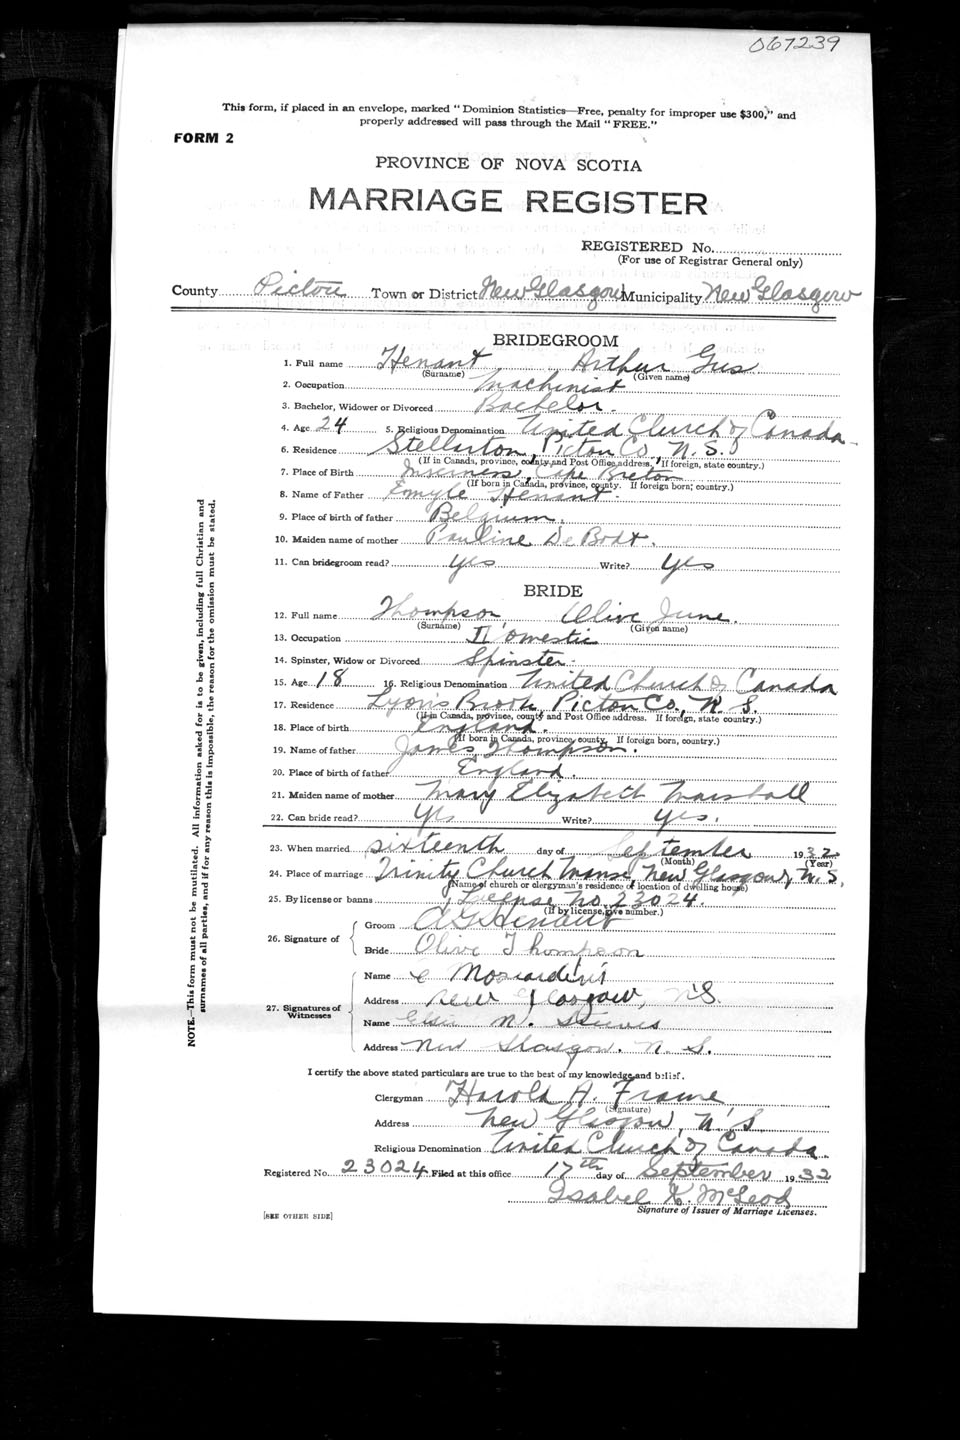 067239
This form, if placed in an envelope, marked "Dominion Statistics—Free, penalty for improper use $300," and
properly addressed will pass through the Mail "FREE."
FORM 2
PROVINCE OF NOVA SCOTIA
MARRIAGE REGISTER
REGISTERED No.
(For use of Registrar General only)
County Pictou Town or District New Glasgow Municipality New Glasgow
BRIDEGROOM
1. Full name Henant Arthur Gus
(Surname) (Given name)
2. Occupation Machinist
3. Bachelor, Widower or Divorced Bachelor.
4. Age 24 5. Religious Denomination United Church of Canada
6. Residence Stellarton, Picton Co, N.S.
(If in Canada, province, county and Post Office address. If foreign, state country.)
7. Place of Birth Inverness, Cape Breton
(If born in Canada, province, county. If foreign born; country.)
8. Name of Father Emyle Henant.
9. Place of birth of father Belgium.
10. Maiden name of mother Pauline De Bodt.
11. Can bridegroom read? Yes Write? Yes
BRIDE
12. Full name Thompson Olive June.
(Surname) (Given name)
13. Occupation Domestic
14. Spinster, Widow or Divorced Spinster.
15. Age 18 16. Religious Denomination United Church of Canada
17. Residence Lyons Brook Picton Co., N.S.
(If in Canada, province, county and Post Office address. If foreign, state country.)
18. Place of birth England.
(If born in Canada, province, county. If foreign born, country.)
19. Name of father James Thompson.
20. Place of birth of father England.
21. Maiden name of mother Mary Elizabeth Marshall
22. Can bride read? Yes Write? Yes.
23. When married sixteenth day of September 1932
(Month) (Year)
24. Place of marriage Trinity Church Manse, New Glasgow, N.S.
(Name of church or clergyman's residence of location of dwelling house)
25. By license or banns License No. 23024.
(If by license, give number.)
26. Signature of
Groom A G Henaut
Bride Olive Thompson
27. Signatures of Witnesses
Name
Address New Glasgow, N.S.
Name Elsie N.
Address New Glasgow. N.S.
I certify the above stated particulars are true to the best of my knowledge and belief.
Clergyman Harold A. Frame
(Signature)
Address New Glasgow, N.S.
Religious Denomination United Church of Canada.
Registered No. 23024 Filed at this office 17th day of September 1932
Isabel K. McLeod
Signature of Issuer of Marriage Licenses.
[SEE OTHER SIDE]
NOTE.—This form must not be mutilated. All information asked for is to be given, including full Christian and
surnames of all parties, and if for any reason this is impossible, the reason for the omission must be stated.